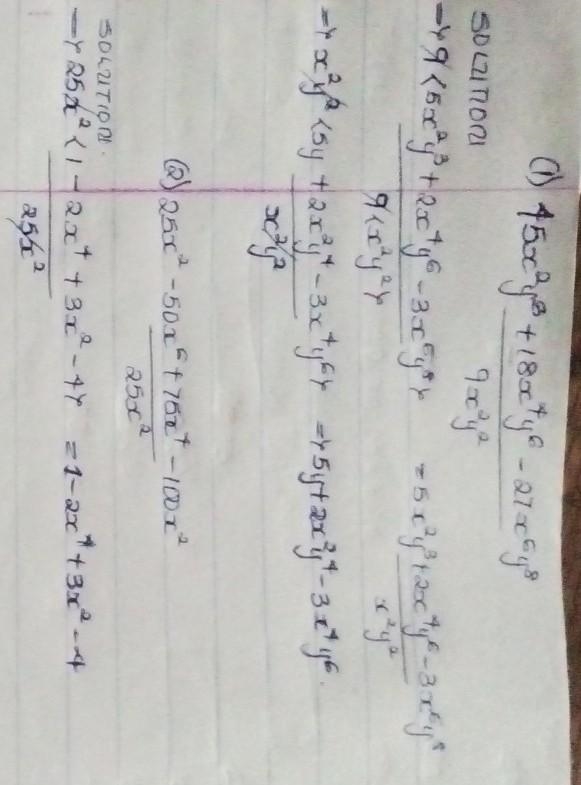 (1) 45x²y³ + 18x⁴y⁶ - 27x⁶y⁸
9x²y²
SOLUTION
→ 9(5x²y³ + 2x⁴y⁶ - 3x⁶y⁸) = 5x²y³ + 2x⁴y⁶ - 3x⁶y⁸
9(x²y²) x²y²
⇒ x²y²(5y + 2x²y⁴ - 3x⁴y⁶) ⇒ 5y + 2x²y⁴ - 3x⁴y⁶.
x²y²
(2) 25x² - 50x⁶ + 75x⁴ - 100x²
25x²
SOLUTION.
→ 25x²(1 - 2x⁴ + 3x² - 4) = 1 - 2x⁴ + 3x² - 4
25x²